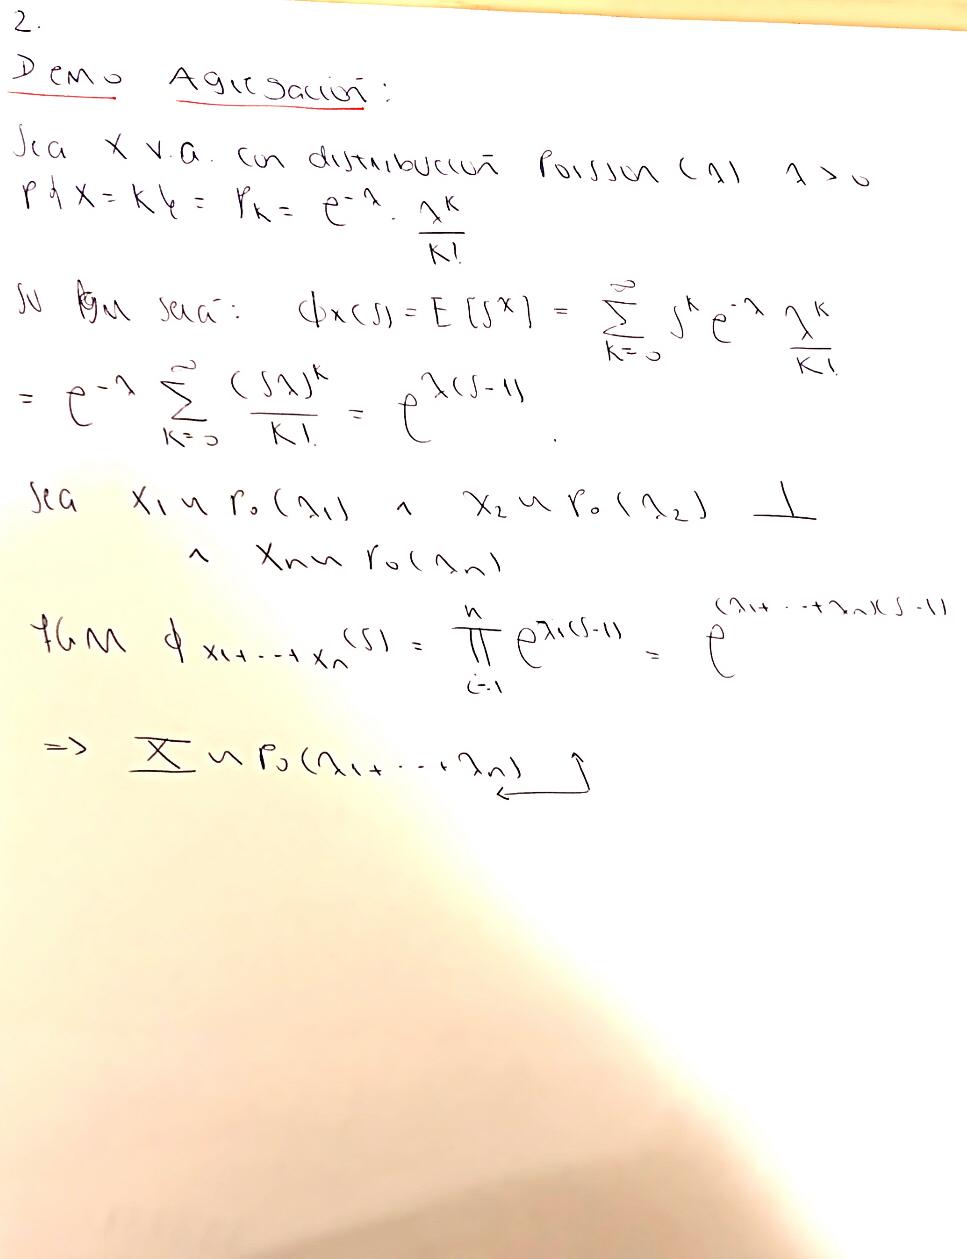 2.
Demo Agregación:
Sea X v.a. con distribución Poisson (λ) λ>0
P{X=K} = P_K = e^{-λ} . λ^K/K!
Su será: ϕ_X(S) = E[S^X] = ∑_{K=0}^{∞} S^K e^{-λ} λ^K/K!
= e^{-λ} ∑_{K=0}^{∞} (Sλ)^K/K! = e^{λ(S-1)}.
Sea X_1 ~ Po(λ_1) ∧ X_2 ~ Po(λ_2) ⊥
∧ X_n ~ Po(λ_n)
FGM ϕ_{X_1+...+X_n}(S) = ∏_{i=1}^{n} e^{λ_i(S-1)} = e^{(λ_1+...+λ_n)(S-1)}
=> X ~ Po(λ_1+...+λ_n)